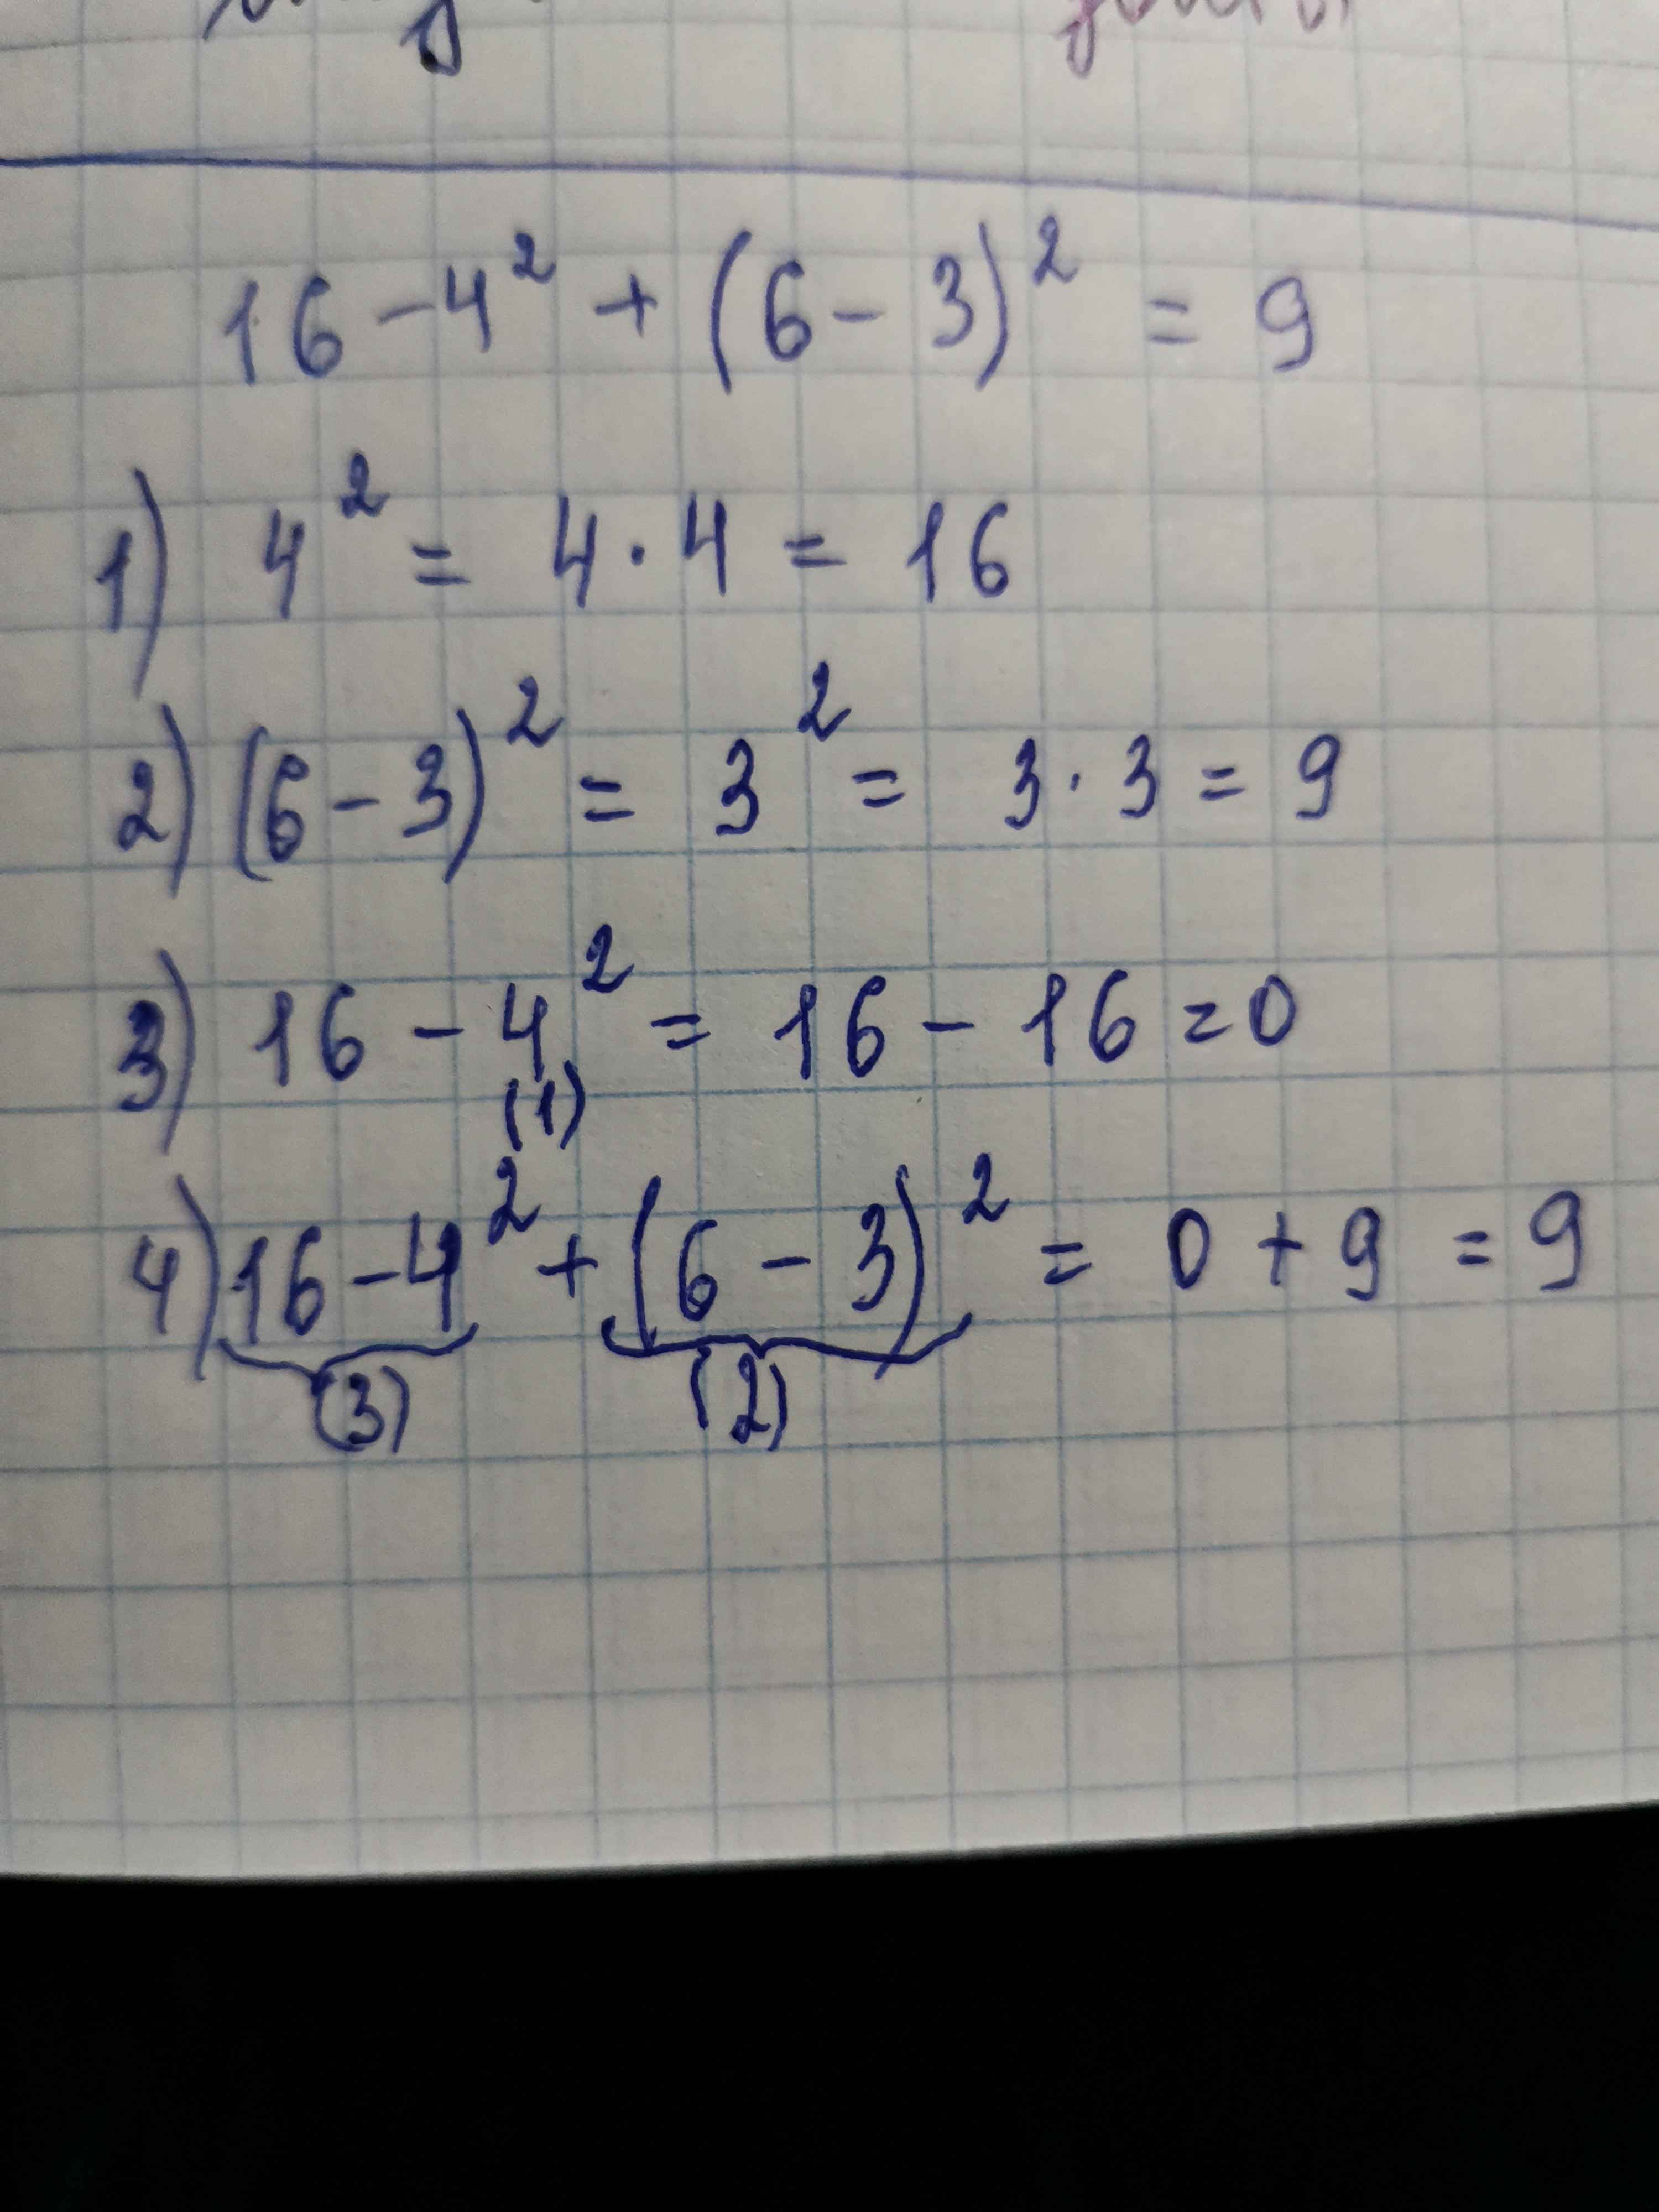 16 - 4² + (6 - 3)² = 9
1) 4² = 4 · 4 = 16
2) (6 - 3)² = 3² = 3 · 3 = 9
3) 16 - 4² = 16 - 16 = 0
(1)
4) 16 - 4² + (6 - 3)² = 0 + 9 = 9
(3) (2)